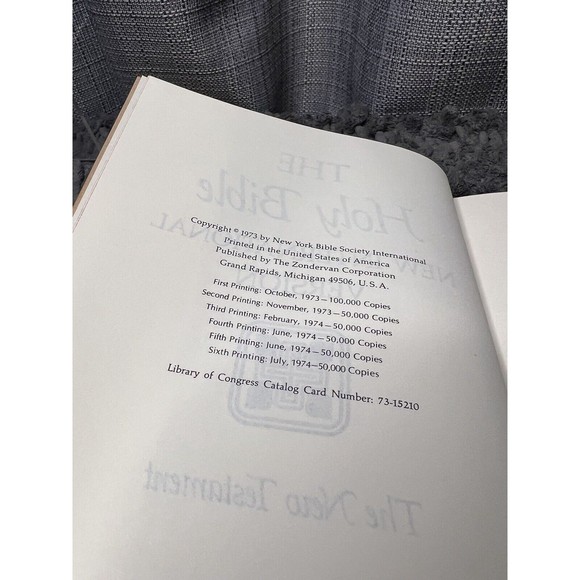 THE
Holy Bible
NEW INTERNATIONAL
VERSION
Copyright © 1973 by New York Bible Society International
Printed in the United States of America
Published by The Zondervan Corporation
Grand Rapids, Michigan 49506, U.S.A.
First Printing: October, 1973—100,000 Copies
Second Printing: November, 1973—50,000 Copies
Third Printing: February, 1974—50,000 Copies
Fourth Printing: June, 1974—50,000 Copies
Fifth Printing: June, 1974—50,000 Copies
Sixth Printing: July, 1974—50,000 Copies
Library of Congress Catalog Card Number: 73-15210
The New Testament